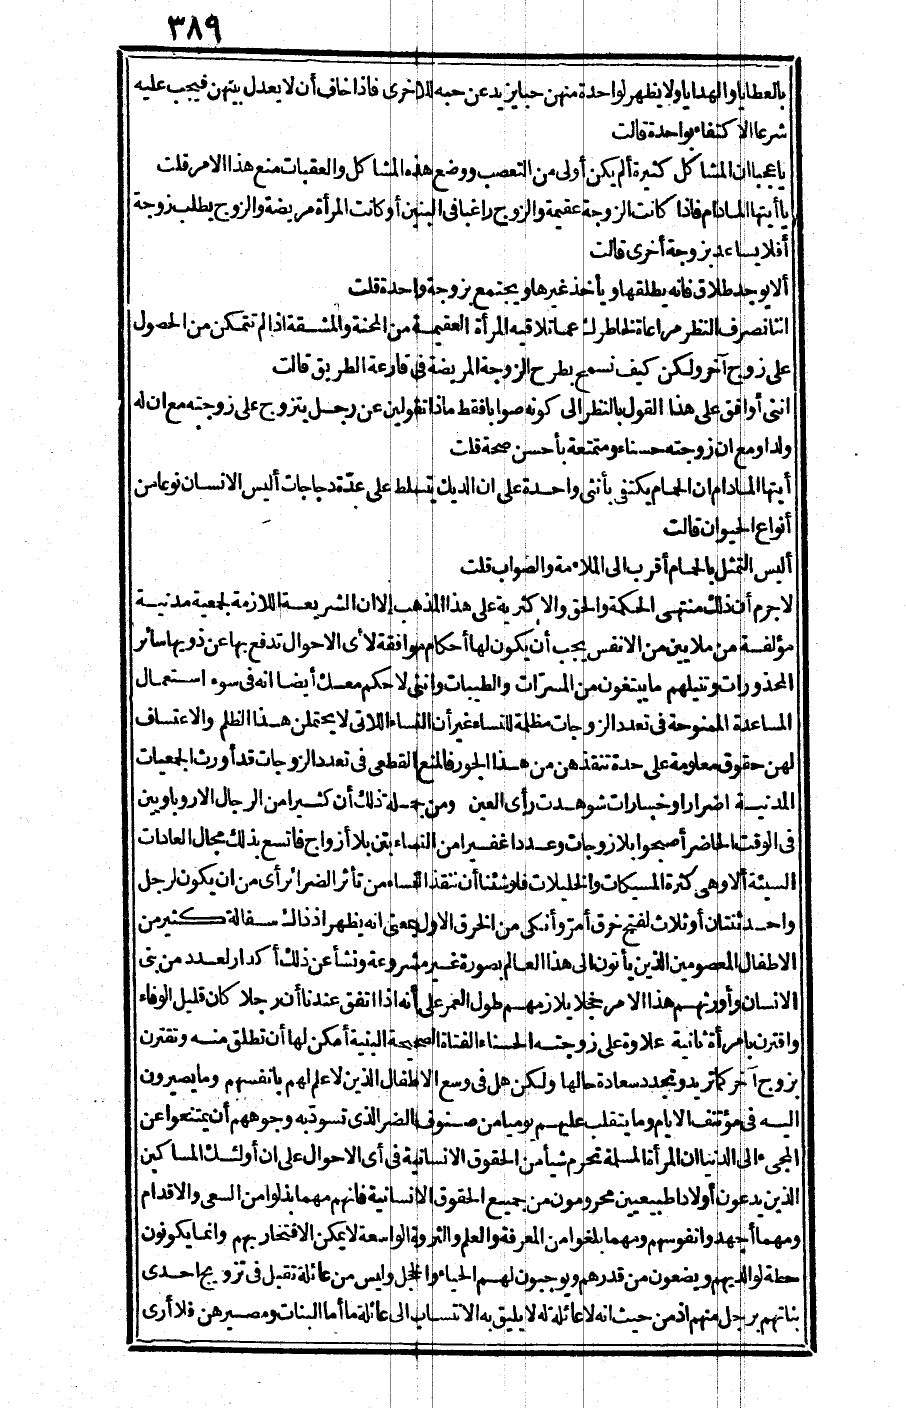 ٣٨٩
بالعطايا والهدايا ولا يظهر لواحدة منهن حبا يزيد عن حبه للاخرى فاذا خاف أن لا يعدل بينهن فيجب عليه
شرعا الاكتفاء بواحدة قالت
يا عجبا ان المشاكل كثيرة ألم يكن أولى من التعصب ووضع هذه المشاكل والعقبات منع هذا الامر قلت
يا أيتها المادام فاذا كانت الزوجة عقيمة والزوج راغبا فى البنين أو كانت المرأة مريضة والزوج يطلب زوجة
أفلا يساعد بزوجة أخرى قالت
ألا يوجد طلاق فانه يطلقها ويأخذ غيرها ويجتمع بزوجة واحدة قلت
اننا نصرف النظر مراعاة لخاطرك عما تلاقيه المرأة العقيمة من المحنة والمشقة اذا لم تتمكن من الحصول
على زوج آخر ولكن كيف نسمح بطرح الزوجة المريضة فى قارعة الطريق قالت
اننى أوافق على هذا القول بالنظر الى كونه صوابا فقط ماذا تقولين عن رجل يتزوج على زوجته مع ان له
ولدا ومع ان زوجته حسناء ومتمتعة بأحسن صحة قلت
أيتها المادام ان الحمام يكتفى بأنثى واحدة على ان الديك يتسلط على عدّة دجاجات أليس الانسان نوعا من
أنواع الحيوان قالت
أليس التمثل بالحمام أقرب الى الملاءمة والصواب قلت
لا جرم أن ذلك منتهى الحكمة والحق والاكثرية على هذا المذهب إلا ان الشريعة اللازمة لجمعية مدنية
مؤلفة من ملايين من الانفس يجب أن يكون لها أحكام موافقة لأى الاحوال تدفع بها عن ذويها سائر
المحذورات وتنيلهم ما يبتغون من المسرّات والطيبات واننى لاحكم معك أيضا انه فى سوء استعمال
المساعدة الممنوحة فى تعدد الزوجات مظلمة للنساء غير أن النساء اللاتى لا يحتملن هذا الظلم والاعتساف
لهن حقوق معلومة على حدة تنقذهن من هذا الجور فالمنع القطعى فى تعدد الزوجات قد أورث الجمعيات
المدنية اضرارا وخسارات شوهدت رأى العين ومن جملة ذلك أن كثيرا من الرجال الاروباويين
فى الوقت الحاضر أصبحوا بلا زوجات وعددا غفيرا من النساء بتن بلا أزواج فاتسع بذلك مجال العادات
السيئة ألا وهى كثرة المسيكات والخليلات فلو شئنا أن ننقذ النساء من تأثر الضرائر أى من ان يكون لرجل
واحد ثنتان أو ثلاث لفتح خرق أمرّ وأنكى من الخرق الاول بمعنى انه يظهر اذ ذاك سفالة كثير من
الاطفال المعصومين الذين يأتون الى هذا العالم بصورة غير مشروعة ونشأ عن ذلك أكدار لعدد من بنى
الانسان وأورثهم هذا الامر خجلا يلازمهم طول العمر على أنه اذا اتفق عندنا أن رجلا كان قليل الوفاء
واقترن بامرأة ثانية علاوة على زوجته الحسناء الفتاة الصحيحة البنية أمكن لها أن تطلق منه وتقترن
بزوج آخر كما تريد وتجدد سعادة حالها ولكن هل فى وسع الاطفال الذين لا علم لهم بانفسهم وما يصيرون
اليه فى مؤتنف الايام وما يتقلب عليهم يوميا من صنوف الضر الذى تسودّ به وجوههم أن يمتنعوا عن
المجىء الى الدنيا ان المرأة المسلمة تحرم شيأ من الحقوق الانسانية فى أى الاحوال على ان أولئك المساكين
الذين يدعون أولادا طبيعيين محرومون من جميع الحقوق الانسانية فانهم مهما بذلوا من السعى والاقدام
ومهما أجهدوا نفوسهم ومهما بلغوا من المعرفة والعلم والثروة الواسعة لا يمكن الافتخار بهم وانما يكونون
حطة لوالديهم ويضعون من قدرهم ويوجبون لهم الحياء والخجل وليس من عائلة تقبل فى تزويج احدى
بناتهم برجل منهم اذ من حيث انه لا عائلة له لا يليق به الانتساب الى عائلة ما أما البنات ومصيرهن فلا أرى